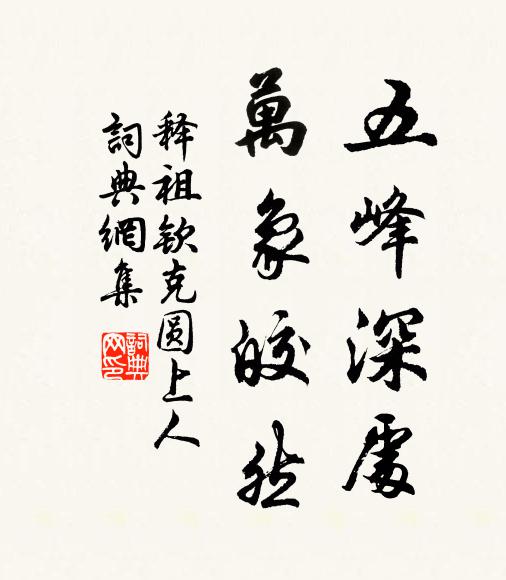 五峰深處
萬象皎然
释祖钦克圆上人
詞典網集
詞典网印